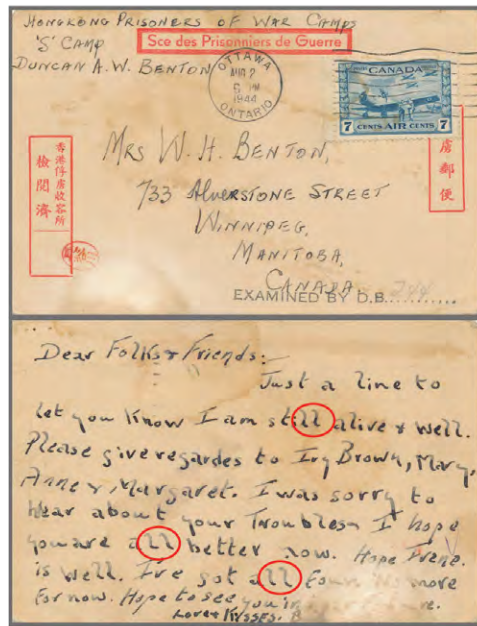 HONGKONG PRISONERS OF WAR CAMPS
'S' CAMP
Sce des Prisonniers de Guerre
DUNCAN A.W. BENTON
OTTAWA
AUG 2
6 PM
1944
ONTARIO
CANADA
7 CENTS AIR CENTS 7
香港俘虜收容所
檢閲濟
虜郵便
MRS W. H. BENTON,
733 ALVERSTONE STREET
WINNIPEG,
MANITOBA,
CANADA
EXAMINED BY D.B. 244
Dear Folks & Friends:
Just a line to
let you know I am still alive & well.
Please give regardes to Ivy Brown, Mary,
Anne & Margaret. I was sorry to
hear about your Troubles I hope
you are all better now. Hope Irene.
is well. I've got all Fours No more
for now. Hope to see you in
Love & Kysses. B